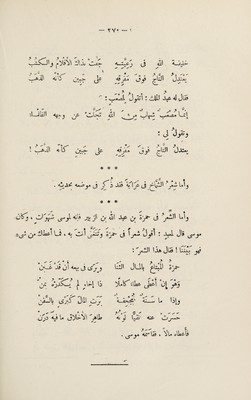 — ٢٧٠ —
خليفة الله في رعيته جفت بذاك الأقلام والكتب
يعتدل التاج فوق مفرقه على جبين كأنه الذهب
فقال له عبد الملك : أتقول لمصعب :
إنما مصعب شهاب من الله تجلت عن وجهه الظلماء
وتقول لي :
يعتدل التاج فوق مفرقه على جبين كأنه الذهب !
* * *
وأما شعر الشماخ في عرابة فقد ذكر في موضعه بحديثه .
* * *
وأما الشعر في حمزة بن عبد الله بن الزبير فإنه لموسى شهوات ، وكان
موسى قال لمعبد : أقول شعراً في حمزة وتتغنى أنت به ، فما أعطاك من شيء
فهو بيننا ! فقال هذا الشعر :
حمزة المبتاع بالمال الثنا ويرى في بيعه أن قد غبن
وهو إن أعطى عطاء كاملا ذا إخاء لم يكدره بمن
وإذا ما سنة مجحفة برت المال كبرى بالسفن
حسرت عنه نقيا لونه طاهر الأخلاق ما فيه درن
فأعطاه مالاً ، فقاسمه موسى .